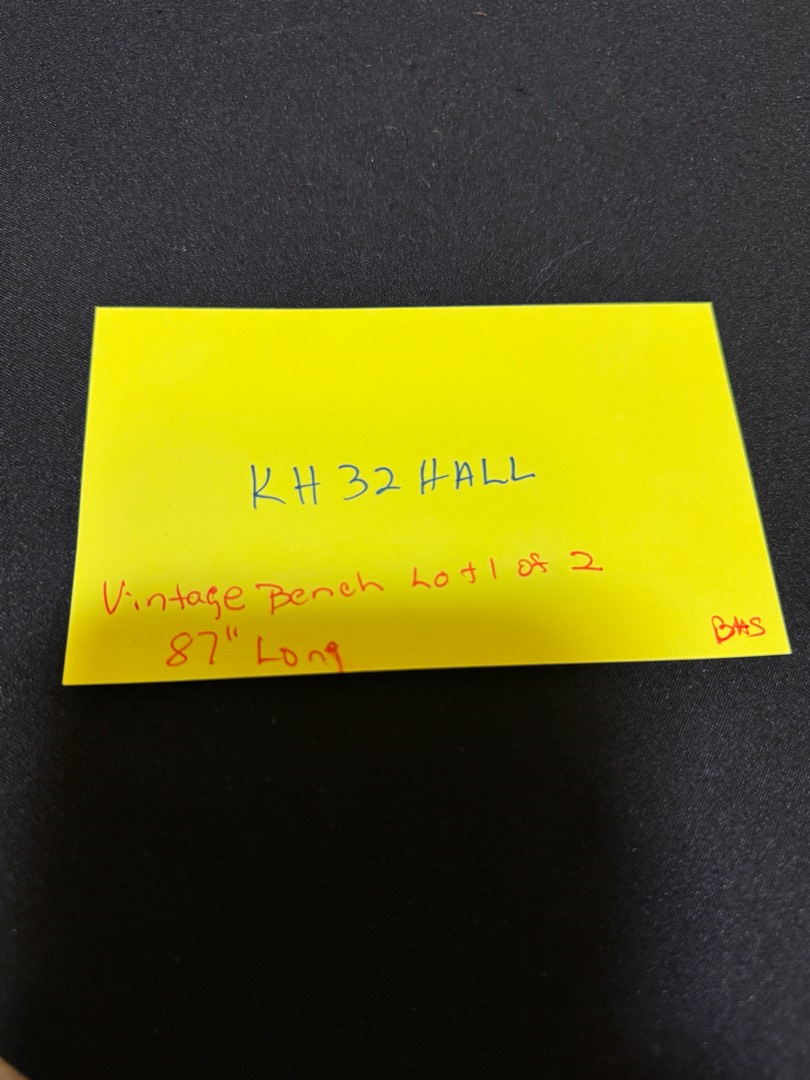 KH 32 HALL
Vintage Bench Lot 1 of 2
87" Long
BHS